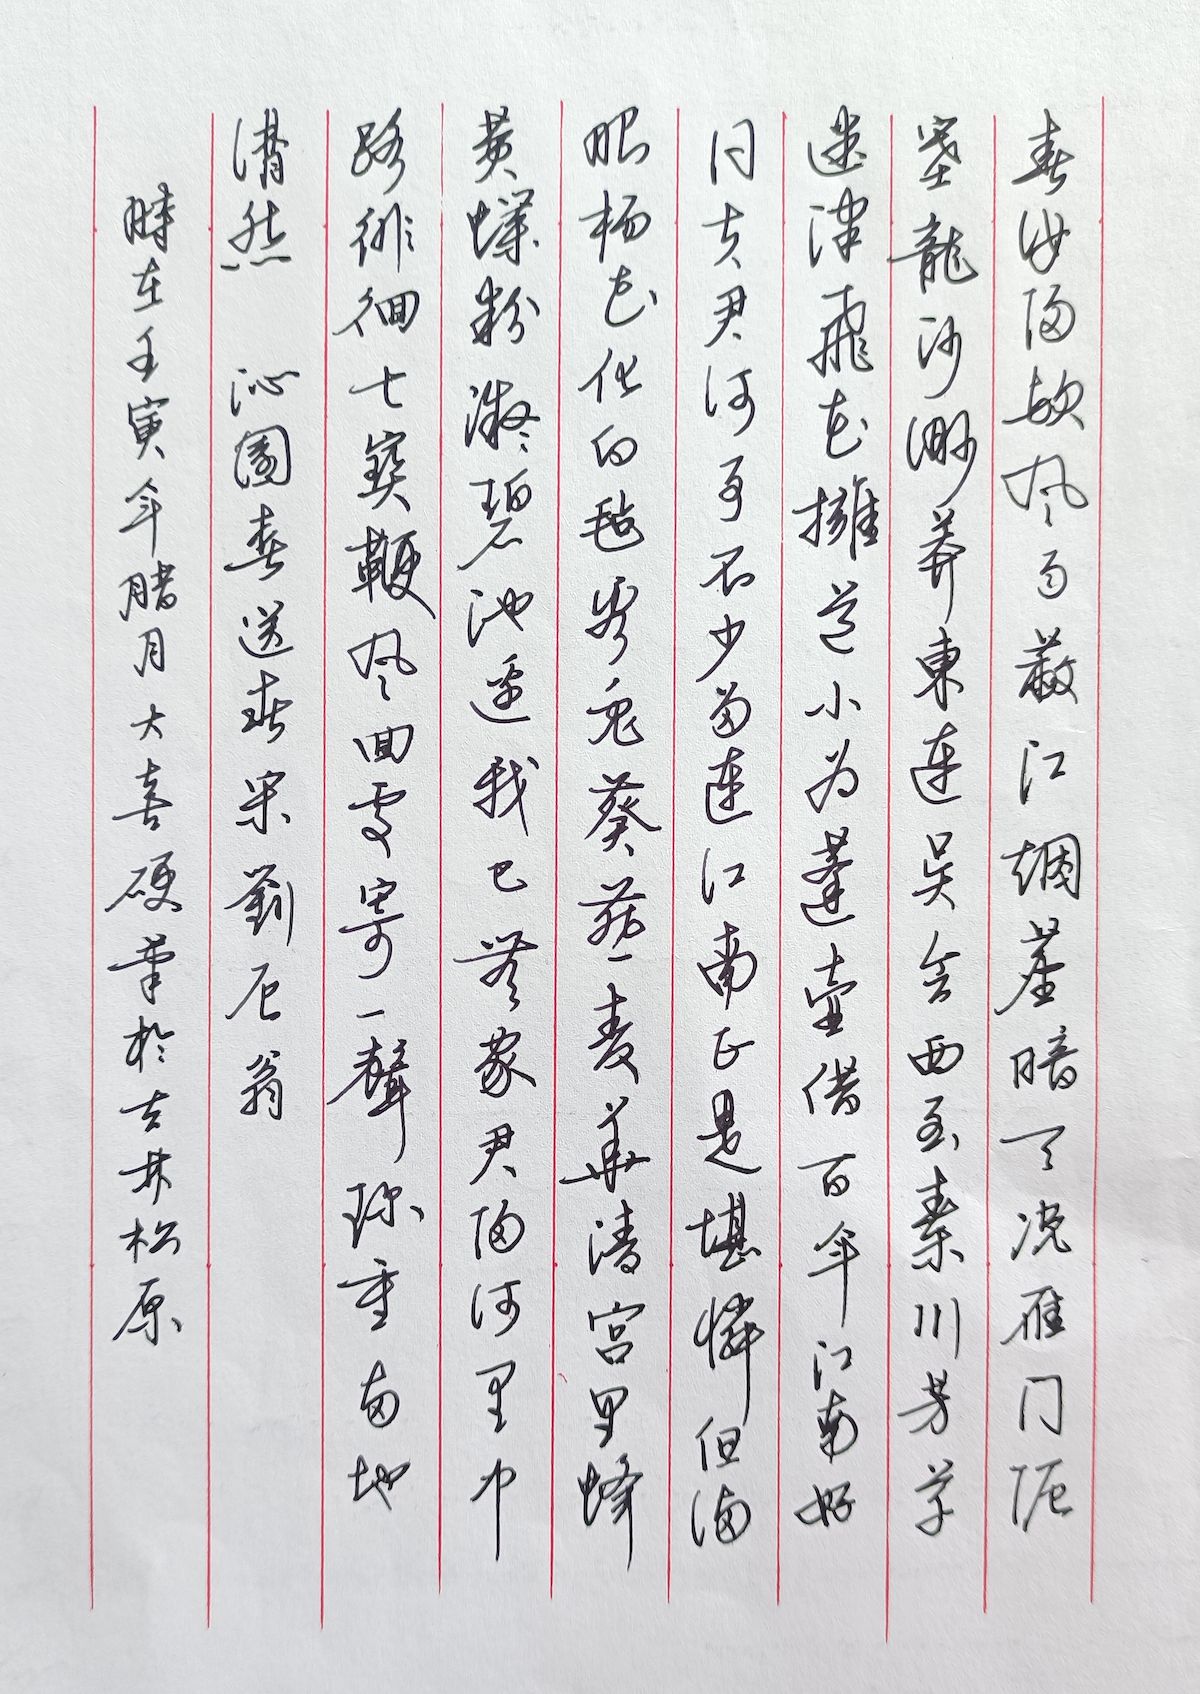 春汝歸欤风雨蔽江烟塵暗天况雁门阨
塞龍沙渺莽東連吴会西至秦川芳草
迷津飛花擁道小为蓬壺借百年江南好
问夫君何事不少留連江南正是堪憐但满
眼楊花化白毡看兔葵燕麦華清宫里蜂
黄蝶粉凝碧池邊我已無家君歸何里中
路徘徊七寳鞭风回処寄一聲珍重両地
潸然 沁園春送春宋劉辰翁
時在壬寅年腊月大喜硬筆於吉林松原